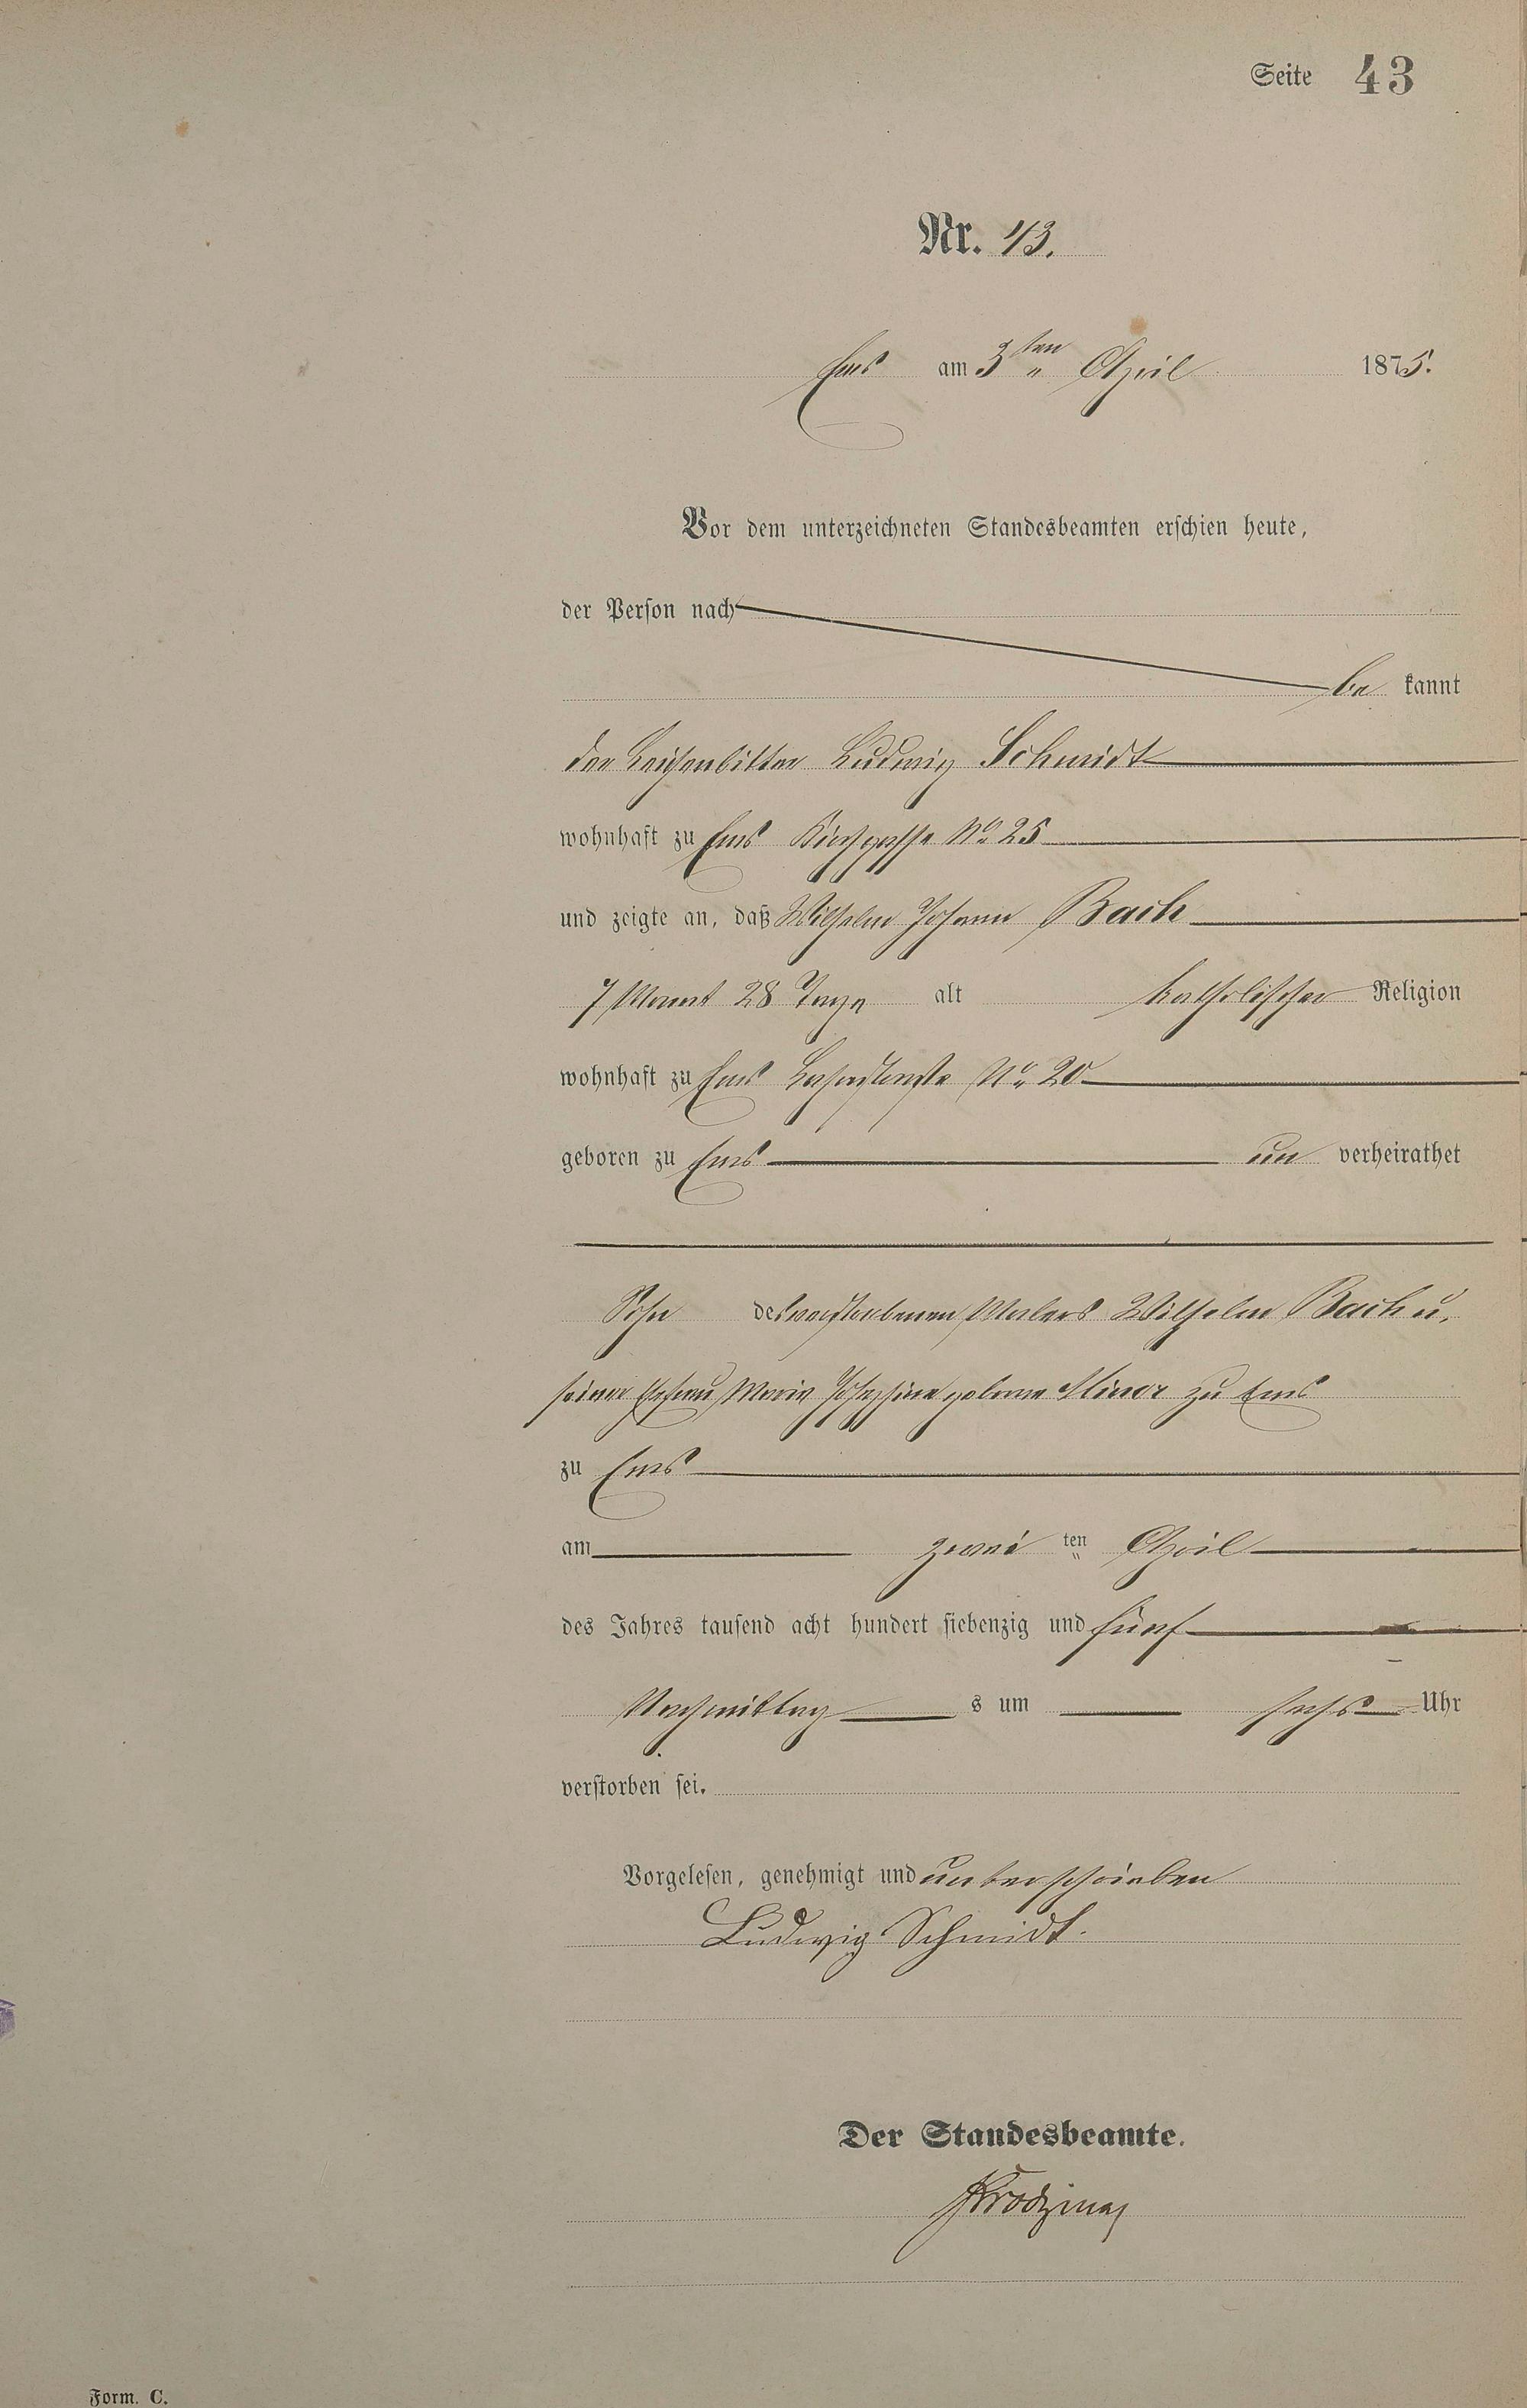 Seite 43
Nr. 43.
Ems am 3ten April 1875.
Vor dem unterzeichneten Standesbeamten erschien heute,
der Person nach
be kannt
der Leichenbitter Ludwig Schmidt
wohnhaft zu Ems Kirchgasse No 25
und zeigte an, daß Wilhelm Johann Bach
7 Monat 28 Tage alt katholischer Religion
wohnhaft zu Ems No 20
geboren zu Ems un verheirathet
Sohn des verstorbenen Malers Wilhelm Bach u.
seiner Ehefrau Maria Josephine geborne Minor zu Ems
zu Ems
am zwei ten April
des Jahres tausend acht hundert siebenzig und fünf
Nachmittag s um sechs Uhr
verstorben sei.
Vorgelesen, genehmigt und unterschrieben
Ludwig Schmidt.
Der Standesbeamte.
Form. C.